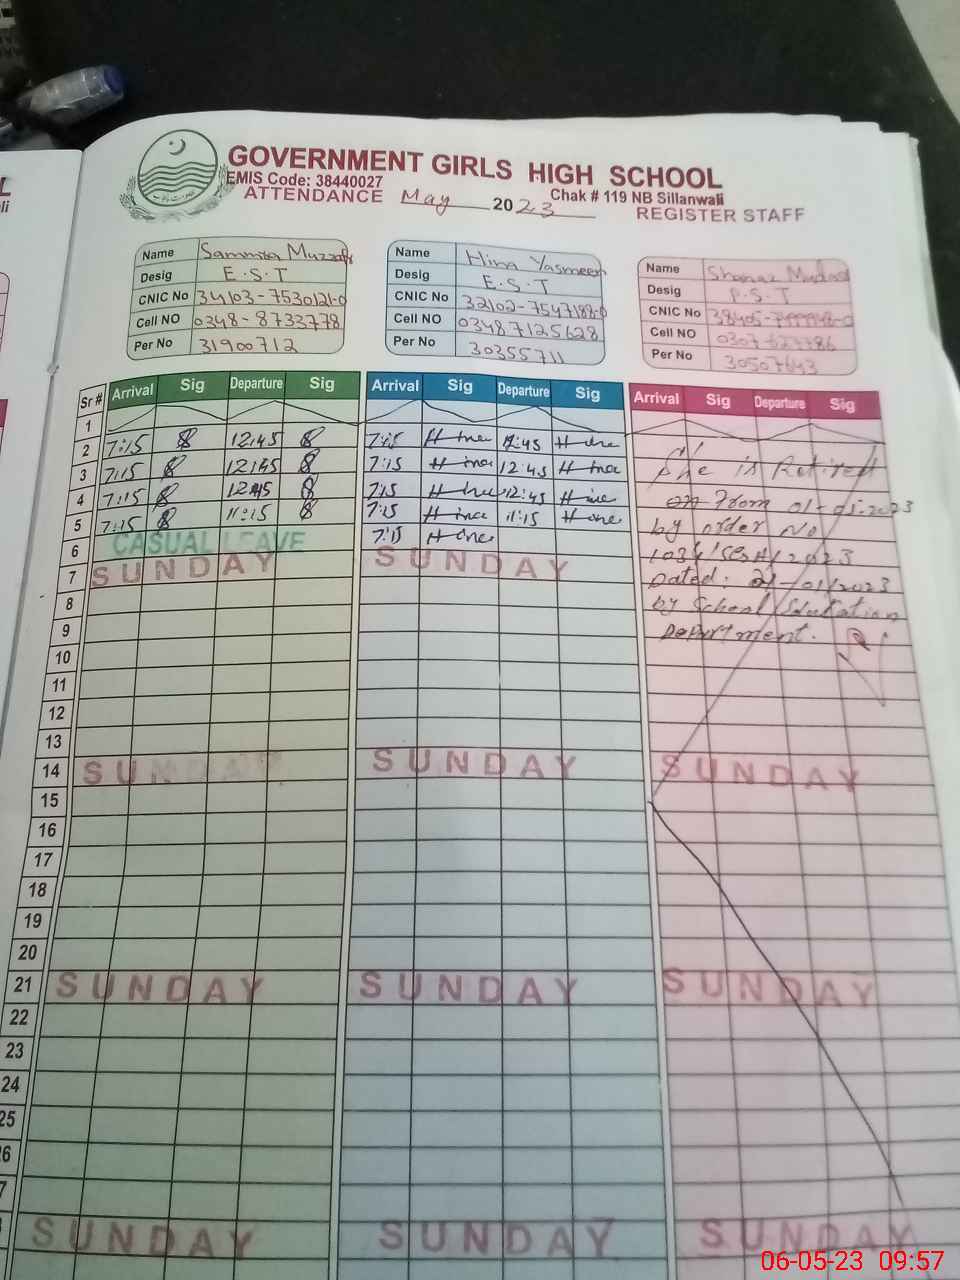 GOVERNMENT GIRLS HIGH SCHOOL
EMIS Code: 38440027
Chak # 119 NB Sillanwali
ATTENDANCE May 2023 REGISTER STAFF
Name Sammita Muzzafar
Desig E.S.T
CNIC No 34103-7530121-0
Cell NO 0348-8733778
Per No 31900712
Name Hina Yasmeen
Desig E.S.T
CNIC No 32102-7547188-0
Cell NO 03487125628
Per No 30355711
Name Shanaz
Desig P.S.T
CNIC No
Cell NO
Per No 30507643
Sr # Arrival Sig Departure Sig Arrival Sig Departure Sig Arrival Sig Departure Sig
1
2 7:15 12:45 7:15 Hina 12:45 Hina
3 7:15 12:45 7:15 Hina 12:45 Hina
4 7:15 12:45 7:15 Hina 12:45 Hina
5 7:15 11:15 7:15 Hina 11:15 Hina
6 CASUAL LEAVE 7:15 Hina
7 SUNDAY SUNDAY
She is Retired
on From 01-01-2023
by order No
Dated. 21-/01/2023
by School Education
Department.
8
9
10
11
12
13
14 SUNDAY SUNDAY SUNDAY
15
16
17
18
19
20
21 SUNDAY SUNDAY SUNDAY
22
23
24
25
26
27
28 SUNDAY SUNDAY SUNDAY
06-05-23 09:57